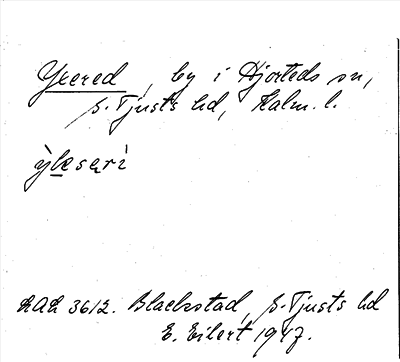 Yxered, by i Hjorteds sn,
S. Tjusts hd, Kalm. l.
ỳkesari
KAK 3612. Blackstad, S. Tjusts hd
E. Eilert 1947.